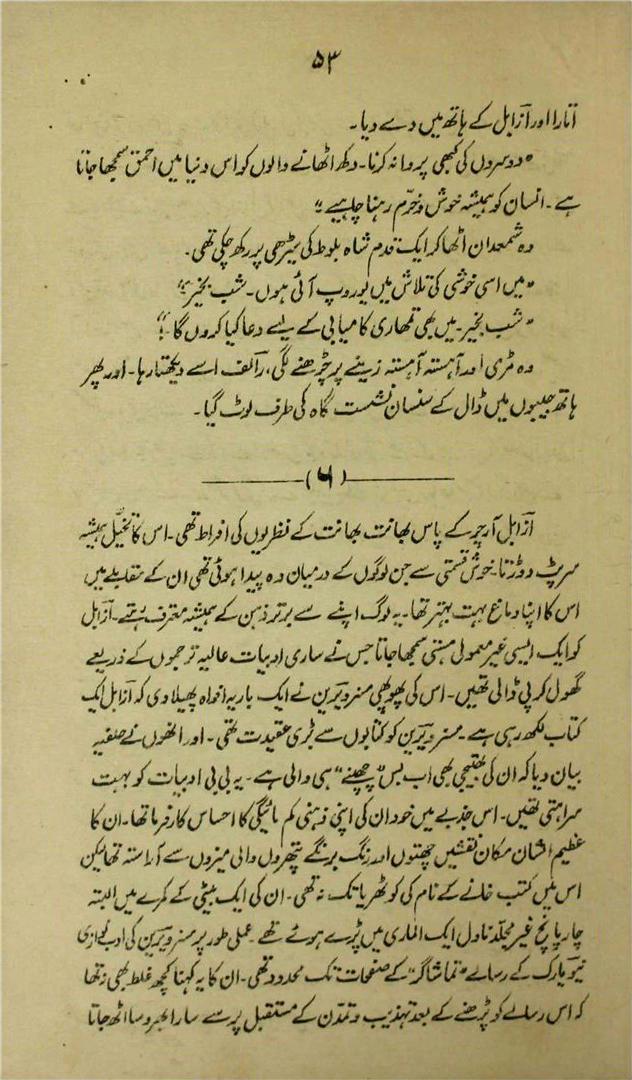 ۵۳
اتارا اور آزابل کے ہاتھ میں دے دیا۔
"دوسروں کی کبھی پروا نہ کرنا۔ دکھ اٹھانے والوں کو اس دنیا میں احمق سمجھا جاتا
ہے۔ انسان کو ہمیشہ خوش و خرّم رہنا چاہیے"
وہ شمعدان اٹھا کر ایک قدم شاہ بلوط کی سیڑھی پر رکھ چکی تھی۔
"میں اسی خوشی کی تلاش میں یوروپ آئی ہوں۔ شب بخیر"
"شب بخیر۔ میں بھی تمھاری کامیابی کے لیے دعا کیا کروں گا۔!"
وہ مڑی اور آہستہ آہستہ زینے پر چڑھنے لگی، رآلف اسے دیکھتا رہا۔ اور پھر
ہاتھ جیبوں میں ڈال کے سنسان نشست گاہ کی طرف لوٹ گیا۔
(۶)
آزابل آرچر کے پاس بھانت بھانت کے نظریوں کی افراط تھی۔ اس کا تخیّل ہمیشہ
سرپٹ دوڑتا۔ خوش قسمتی سے جن لوگوں کے درمیان وہ پیدا ہوئی تھی ان کے مقابلے میں
اس کا اپنا دماغ بہت بہتر تھا۔ یہ لوگ اپنے سے برتر ذہن کے ہمیشہ معترف رہتے۔ آزابل
کو ایک ایسی غیر معمولی ہستی سمجھا جاتا جس نے ساری ادبیات عالیہ ترجموں کے ذریعے
گھول کر پی ڈالی تھیں۔ اس کی پھوپھی مسز ویرین نے ایک بار یہ افواہ پھیلا دی کہ آزابل ایک
کتاب لکھ رہی ہے۔ مسز ویرین کو کتابوں سے بڑی عقیدت تھی۔ اور انھوں نے حلفیہ
بیان دیا کہ ان کی بھتیجی بھی اب بس "چھپنے" ہی والی ہے۔ یہ بی بی ادبیات کو بہت
سراہتی تھیں۔ اس جذبے میں خود ان کی اپنی ذہنی کم مائیگی کا احساس کارفرما تھا۔ ان کا
عظیم الشان مکان نقشیں چھتوں اور رنگ برنگے پتھروں والی میزوں سے آراستہ تھا لیکن
اس میں کتب خانے کے نام کی کوٹھریا تک نہ تھی۔ ان کی ایک بیٹی کے کمرے میں البتہ
چار پانچ غیر مجلّد ناول ایک الماری میں پڑے ہوئے تھے۔ عملی طور پر مسز ویرین کی ادب نوازی
نیویارک کے رسالے "تماشاگر" کے صفحات تک محدود تھی۔ ان کا یہ کہنا کچھ غلط بھی نہ تھا
کہ اس رسالے کو پڑھنے کے بعد تہذیب و تمدّن کے مستقبل پر سے سارا بھروسا اٹھ جاتا